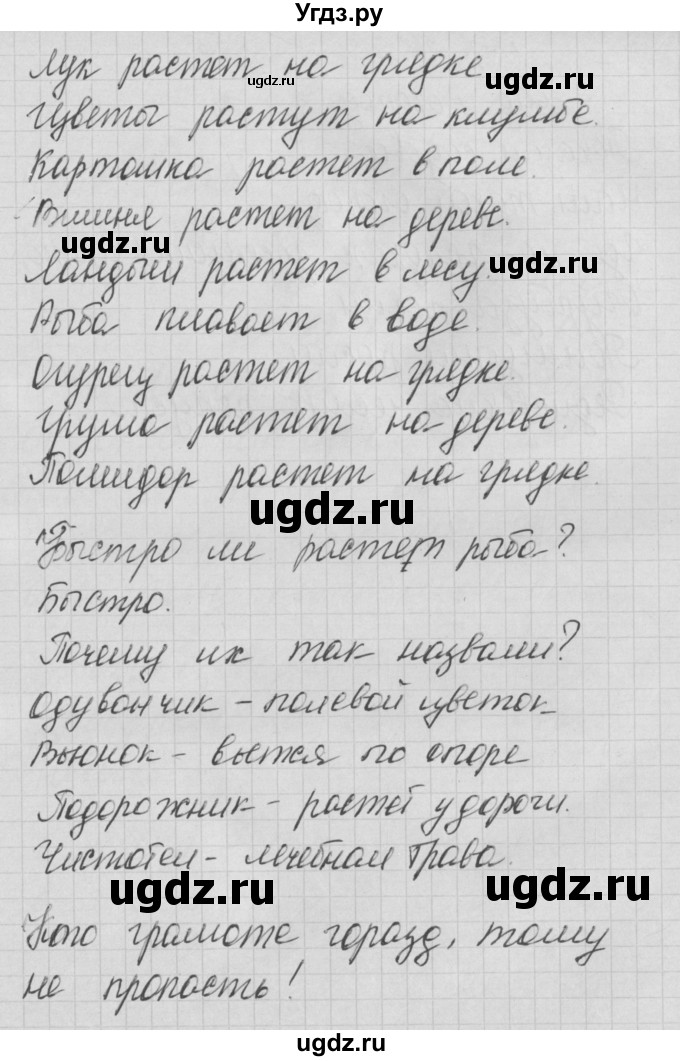 Угдз.ру
Лук растет на грядке
Цветы растут на клумбе.
Картошка растет в поле.
Вишня растет на дереве.
Ландыш растет в лесу.
Рыба плавает в воде.
Огурец растет на грядке.
Груша растет на дереве.
Помидор растет на грядке.
Быстро ли растет рыба?
Быстро.
Почему их так назвали?
Одуванчик – полевой цветок
Вьюнок – вьется по опоре
Подорожник – растет у дороги.
Чистотел – лечебная трава.
Кто грамоте горазд, тому
не пропасть!
ugdz.ru
ugdz.ru
ugdz.ru
ugdz.ru
ugdz.ru
ugdz.ru
ugdz.ru
ugdz.ru
ugdz.ru
ugdz.ru